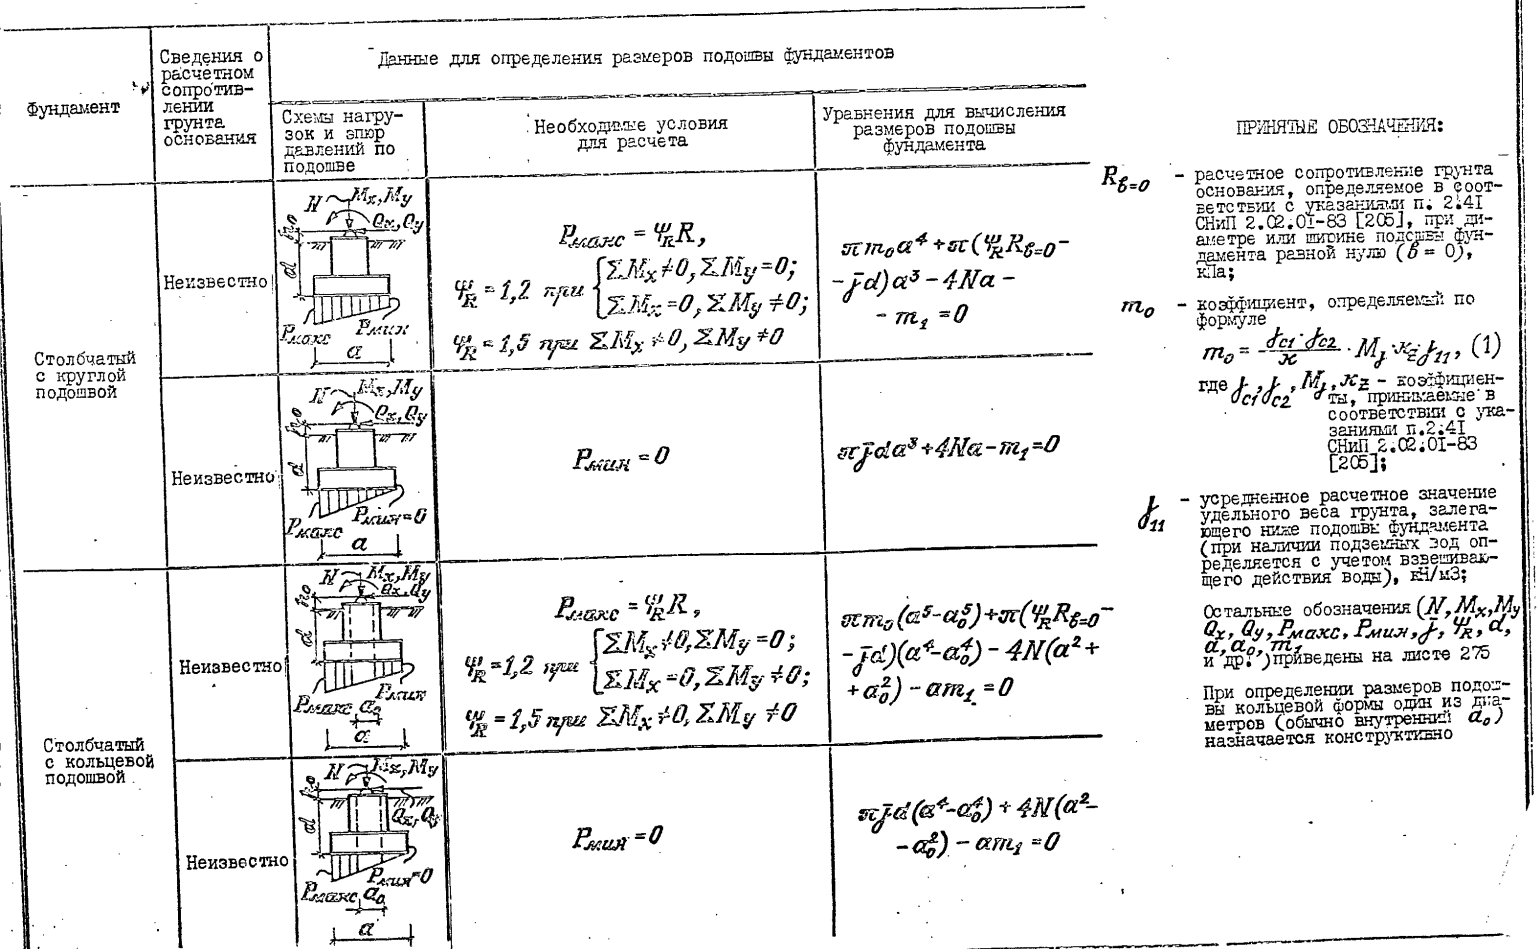 Фундамент
Сведения о
расчетном
сопротив-
лении
грунта
основания
Данные для определения размеров подошвы фундаментов
Схемы нагру-
зок и эпюр
давлений по
подошве
Необходимые условия
для расчета
Уравнения для вычисления
размеров подошвы
фундамента
Столбчатый
с круглой
подошвой
Неизвестно
N Mx, My
Qx, Qy
h₀
d
Pмакс Pмин
a
Pмакс = ΨR R,
ΨR = 1,2 при { ΣMx ≠ 0, ΣMy = 0;
ΣMx = 0, ΣMy ≠ 0;
ΨR = 1,5 при ΣMx ≠ 0, ΣMy ≠ 0
πm₀a⁴ + π(ΨR Rб=0 -
- γ̄d)a³ - 4Na -
- m₁ = 0
Неизвестно
N Mx, My
Qx, Qy
h₀
d
Pмакс Pмин=0
a
Pмин = 0
πγ̄da³ + 4Na - m₁ = 0
Столбчатый
с кольцевой
подошвой
Неизвестно
N Mx, My
Qx, Qy
h₀
d
Pмин
Pмакс a₀
a
Pмакс = ΨR R,
ΨR = 1,2 при { ΣMx ≠ 0, ΣMy = 0;
ΣMx = 0, ΣMy ≠ 0;
ΨR = 1,5 при ΣMx ≠ 0, ΣMy ≠ 0
πm₀(a⁵-a₀⁵) + π(ΨR Rб=0 -
- γ̄d)(a⁴-a₀⁴) - 4N(a² +
+ a₀²) - am₁ = 0
Неизвестно
N Mx, My
h₀
Qx, Qy
d
Pмин=0
Pмакс a₀
a
Pмин = 0
πγ̄d(a⁴-a₀⁴) + 4N(a² -
- a₀²) - am₁ = 0
ПРИНЯТЫЕ ОБОЗНАЧЕНИЯ:
Rб=0 - расчетное сопротивление грунта
основания, определяемое в соот-
ветствии с указаниями п. 2.41
СНиП 2.02.01-83 [205], при ди-
аметре или ширине подошвы фун-
дамента равной нулю (б = 0),
кПа;
m₀ - коэффициент, определяемый по
формуле
m₀ = γc1·γc2/к · Mγ·кzγ11, (1)
где γc1, γc2, Mγ, кz - коэффициен-
ты, принимаемые в
соответствии с ука-
заниями п.2.41
СНиП 2.02.01-83
[205];
γ11 - усредненное расчетное значение
удельного веса грунта, залега-
ющего ниже подошвы фундамента
(при наличии подземных вод оп-
ределяется с учетом взвешиваю-
щего действия воды), кН/м3;
Остальные обозначения (N, Mx, My
Qx, Qy, Pмакс, Pмин, γ̄, ΨR, d,
a, a₀, m₁
и др.) приведены на листе 275
При определении размеров подош-
вы кольцевой формы один из диа-
метров (обычно внутренний a₀)
назначается конструктивно